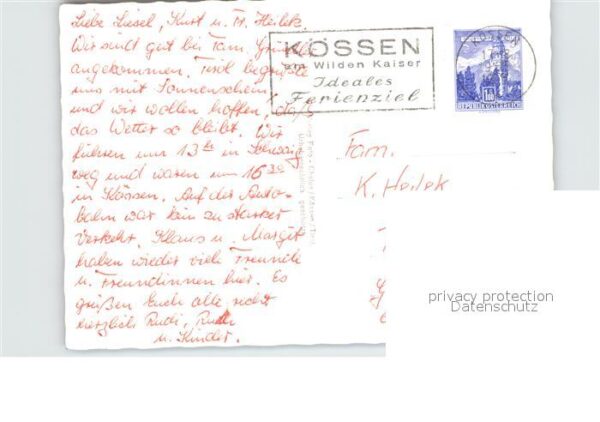 Liebe Liesel, Kurt u. Fr. Heilek.
Wir sind gut bei Fam.
angekommen. Tirol begrüßte
uns mit Sonnenschein
und wir wollen hoffen, daß
das Wetter so bleibt. Wir
fuhren um 13 in
weg und waren um 16 30
in Kössen. Auf der Auto-
bahn war kein zu starker
Verkehr. Klaus u. Margit
haben wieder viele Freunde
u. Freundinnen hier. Es
grüßen Euch alle recht
herzlich Rudi,
u. Kinder.
KÖSSEN
am Wilden Kaiser
Ideales
Ferienziel
REPUBLIK ÖSTERREICH
Fam.
K. Heilek
privacy protection
Datenschutz